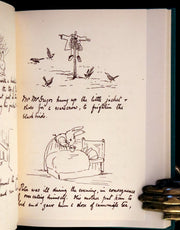 Mr McGregor hung up the little jacket &
shoes for a scarecrow, to frighten the
black birds.
Peter was ill during the evening, in consequence
of over eating himself. His mother put him to
bed and gave him a dose of camomile tea,